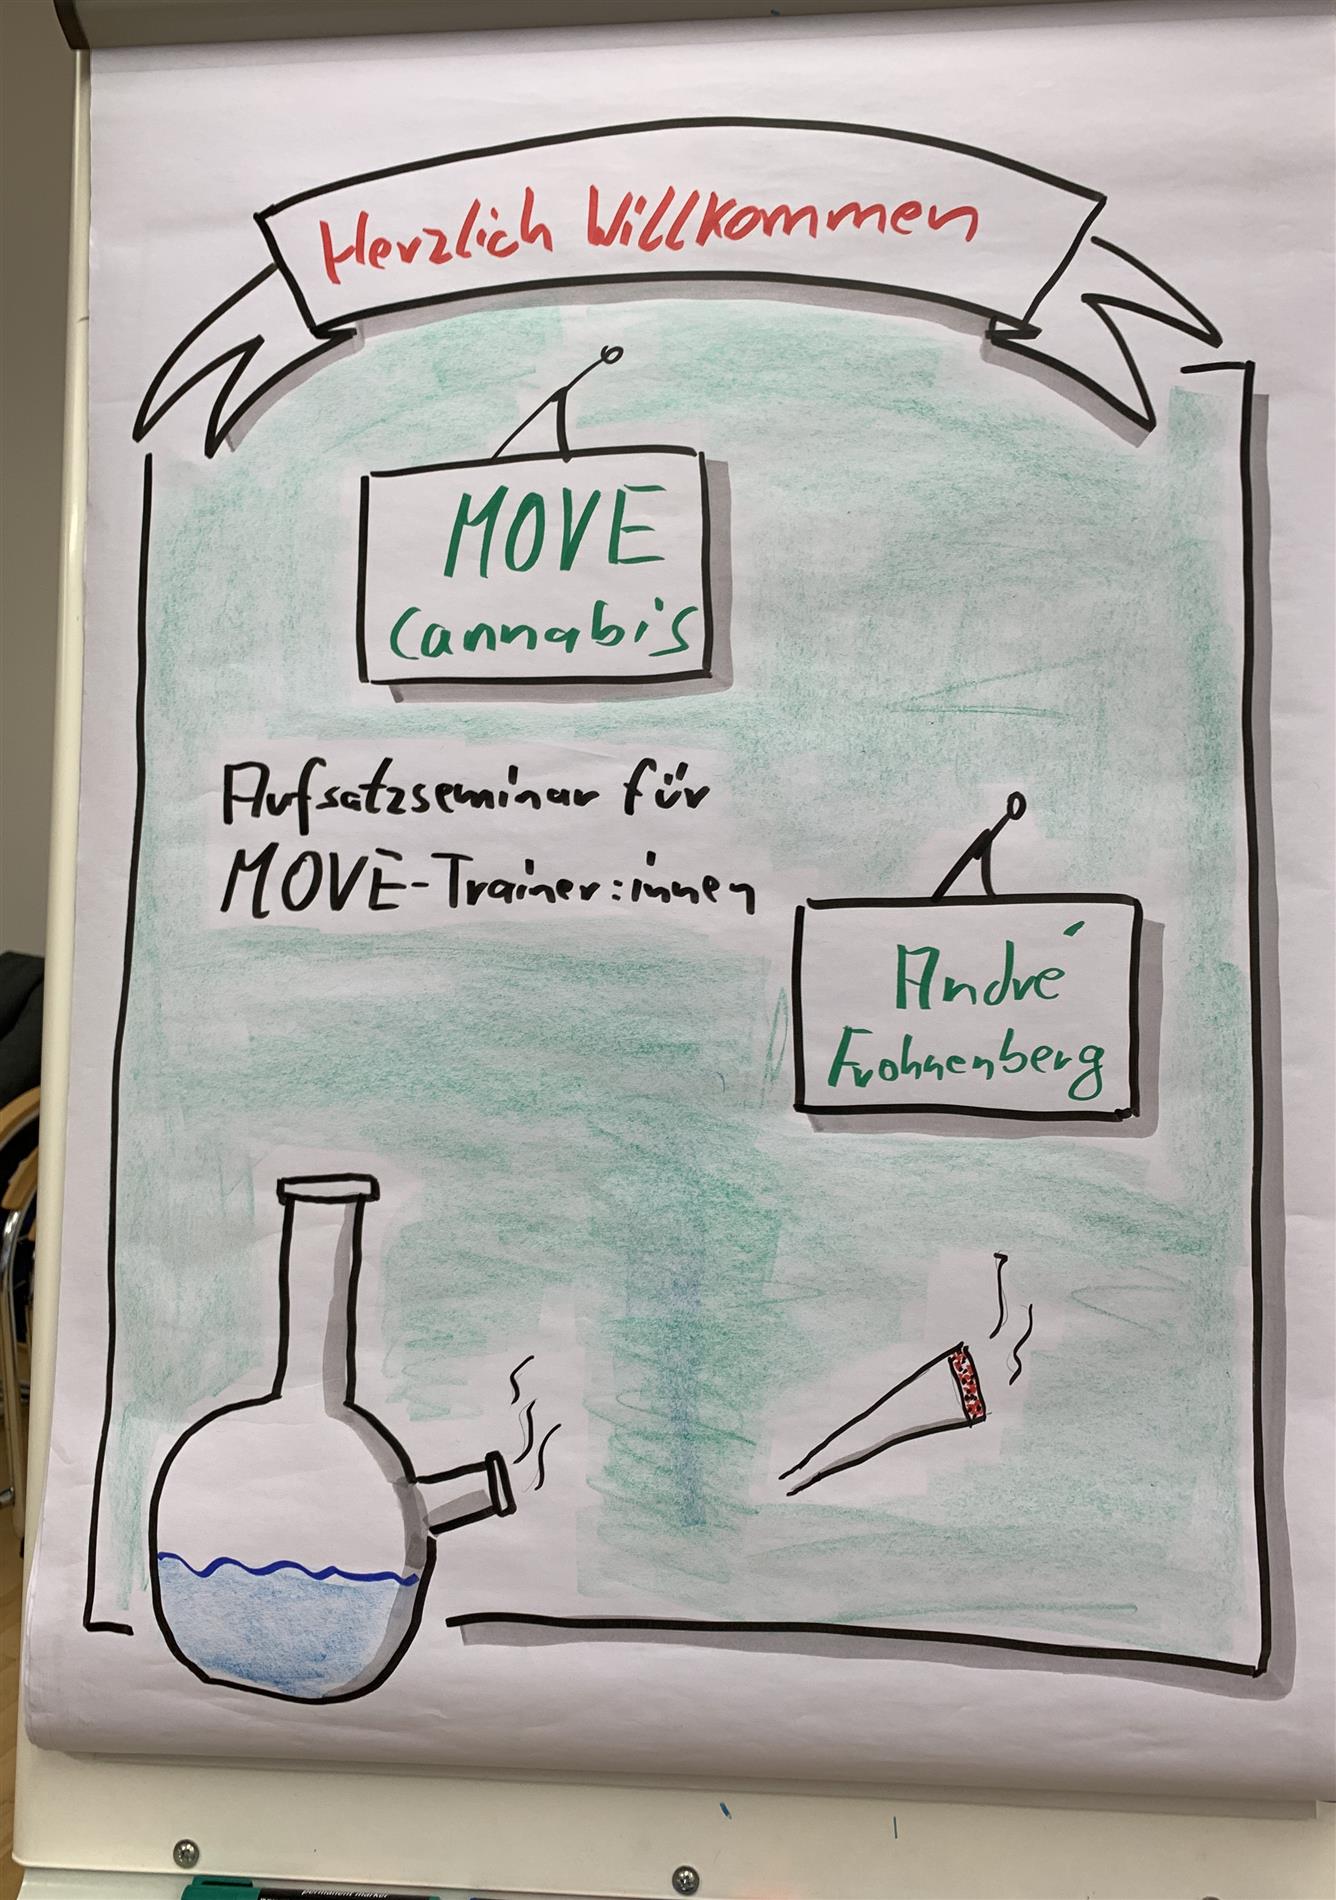 Herzlich Willkommen
MOVE
Cannabis
Aufsatzseminar für
MOVE-Trainer:innen
André
Frohnenberg
permanent marker